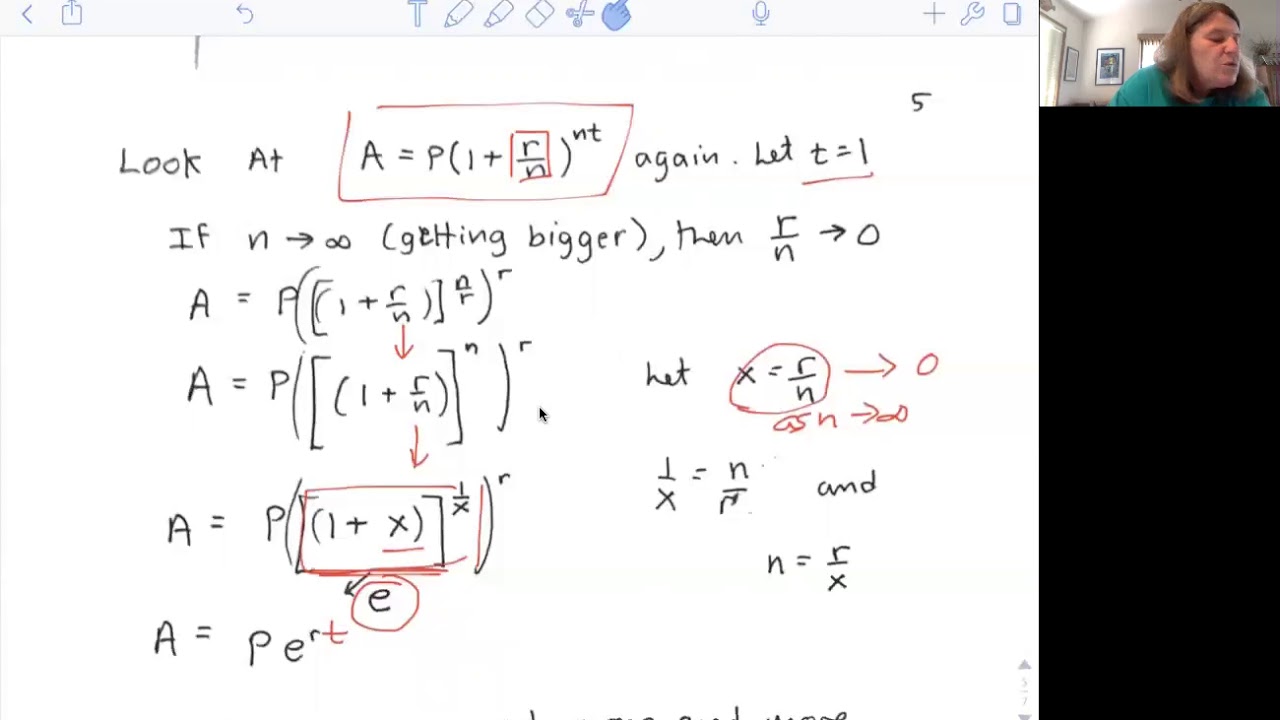 5
Look At A = P(1 + r/n)^nt again. Let t = 1
If n → ∞ (getting bigger), then r/n → 0
A = P([(1 + r/n)]^n/r)^r
A = P([(1 + r/n)]^n)^r
Let x = r/n → 0
as n → ∞
1/x = n/r and
A = P([(1 + x)]^1/x)^r
n = r/x
e
A = P e^rt